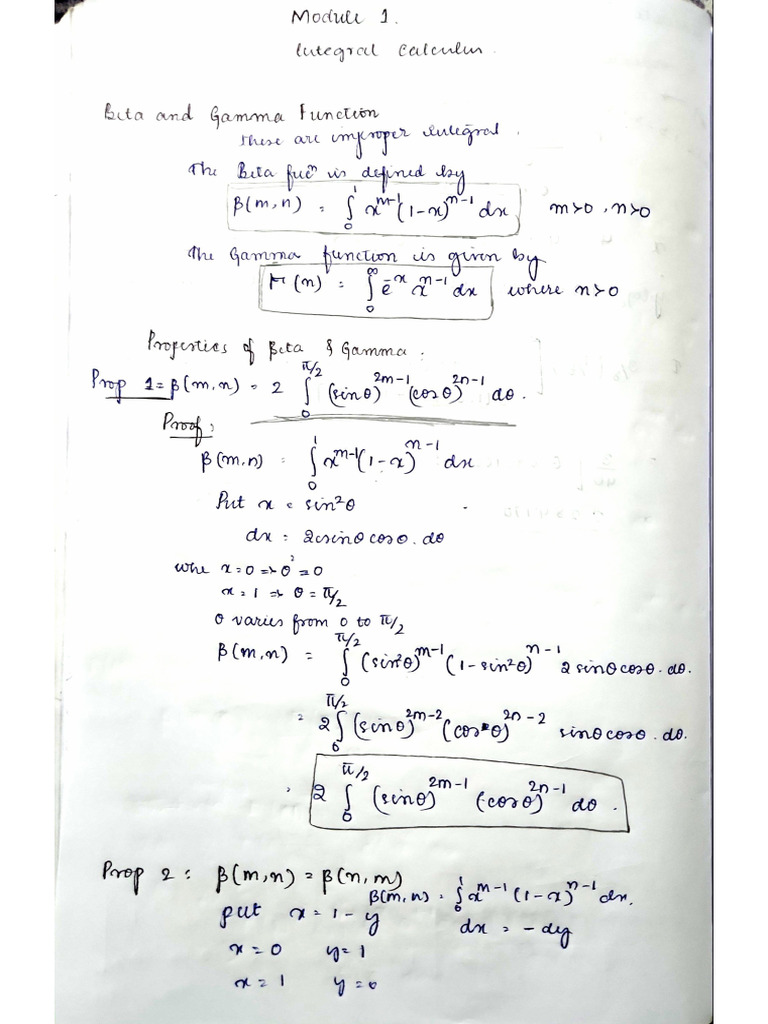 Module 1.
Integral Calculus.
Beta and Gamma Function
These are improper Integral.
The Beta fucⁿ is defined by
β(m,n) = ∫₀¹ x^(m-1) (1-x)^(n-1) dx m>0, n>0
The Gamma function is given by
Γ(n) = ∫₀^∞ e^(-x) x^(n-1) dx where n>0
Properties of Beta & Gamma.
Prop 1 = β(m,n) = 2 ∫₀^(π/2) (sinθ)^(2m-1) (cosθ)^(2n-1) dθ.
Proof:
β(m,n) = ∫₀¹ x^(m-1) (1-x)^(n-1) dx
Put x = sin²θ
dx = 2sinθcosθ.dθ
whe x=0 ⇒ θ=0
x=1 ⇒ θ=π/2
θ varies from 0 to π/2
β(m,n) = ∫₀^(π/2) (sin²θ)^(m-1) (1-sin²θ)^(n-1) 2sinθcosθ.dθ.
= 2∫₀^(π/2) (sinθ)^(2m-2) (cosθ)^(2n-2) sinθcosθ.dθ.
= 2 ∫₀^(π/2) (sinθ)^(2m-1) (cosθ)^(2n-1) dθ.
Prop 2: β(m,n) = β(n,m)
β(m,n) = ∫₀¹ x^(m-1) (1-x)^(n-1) dx.
put x = 1-y dx = -dy
x=0 y=1
x=1 y=0